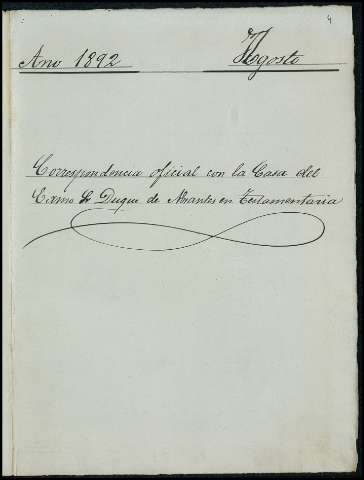 4
Año 1892 Agosto
Correspondencia oficial con la Casa del
Exmo Sr Duque de Abrantes en Testamentaria